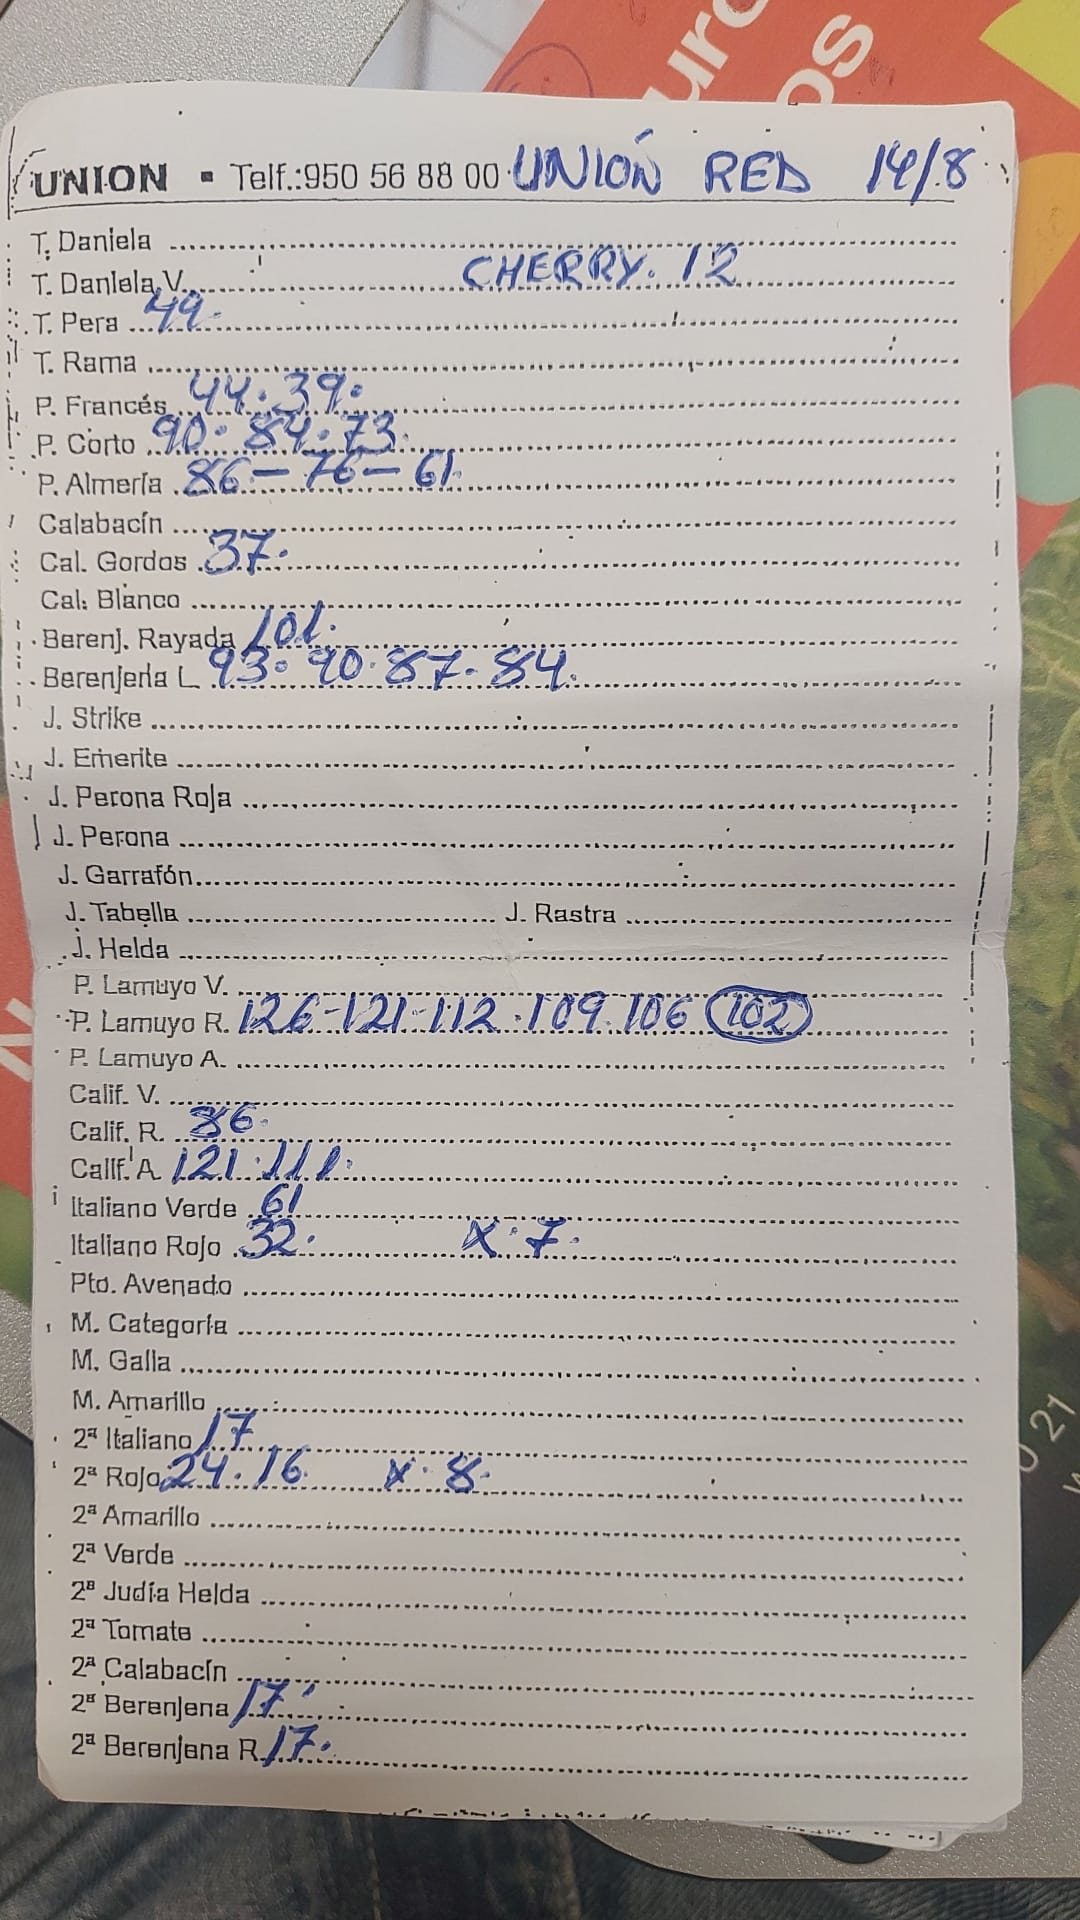 UNION ▪ Telf.:950 56 88 00 UNIÓN RED 14/8
T. Daniela
T. Daniela V. CHERRY. 12
T. Pera 49.
T. Rama
P. Francés 44. 39.
P. Corto 90. 84. 73.
P. Almería 86 - 76 - 61.
Calabacín
Cal. Gordos 37.
Cal. Blanco
Berenj. Rayada 101.
Berenjena L 93. 90. 87. 84.
J. Strike
J. Emerite
J. Perona Roja
J. Perona
J. Garrafón
J. Tabella J. Rastra
J. Helda
P. Lamuyo V.
P. Lamuyo R. 126-121-112.109.106 102
P. Lamuyo A.
Calif. V.
Calif. R. 86.
Calif. A 121.111.
Italiano Verde 61
Italiano Rojo 32. x. 7.
Pto. Avenado
M. Categoría
M. Galia
M. Amarillo
2ª Italiano 17
2ª Rojo 24. 16. x. 8.
2ª Amarillo
2ª Verde
2ª Judía Helda
2ª Tomate
2ª Calabacín
2ª Berenjena 17.
2ª Berenjena R 17.
21